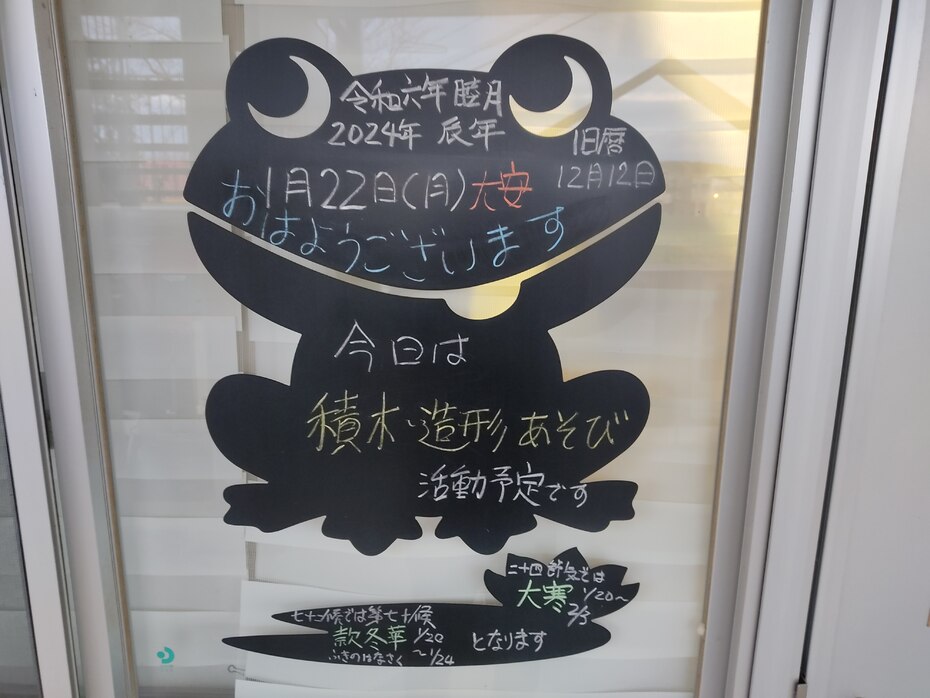 令和六年 睦月
2024年 辰年
旧暦
12月12日
1月22日(月)大安
おはようございます
今日は
積木・造形あそび
活動予定です
二十四節気では
大寒 1/20〜
2/3
七十二候では第七十候
款冬華 1/20
ふきのはなさく 〜1/24
となります